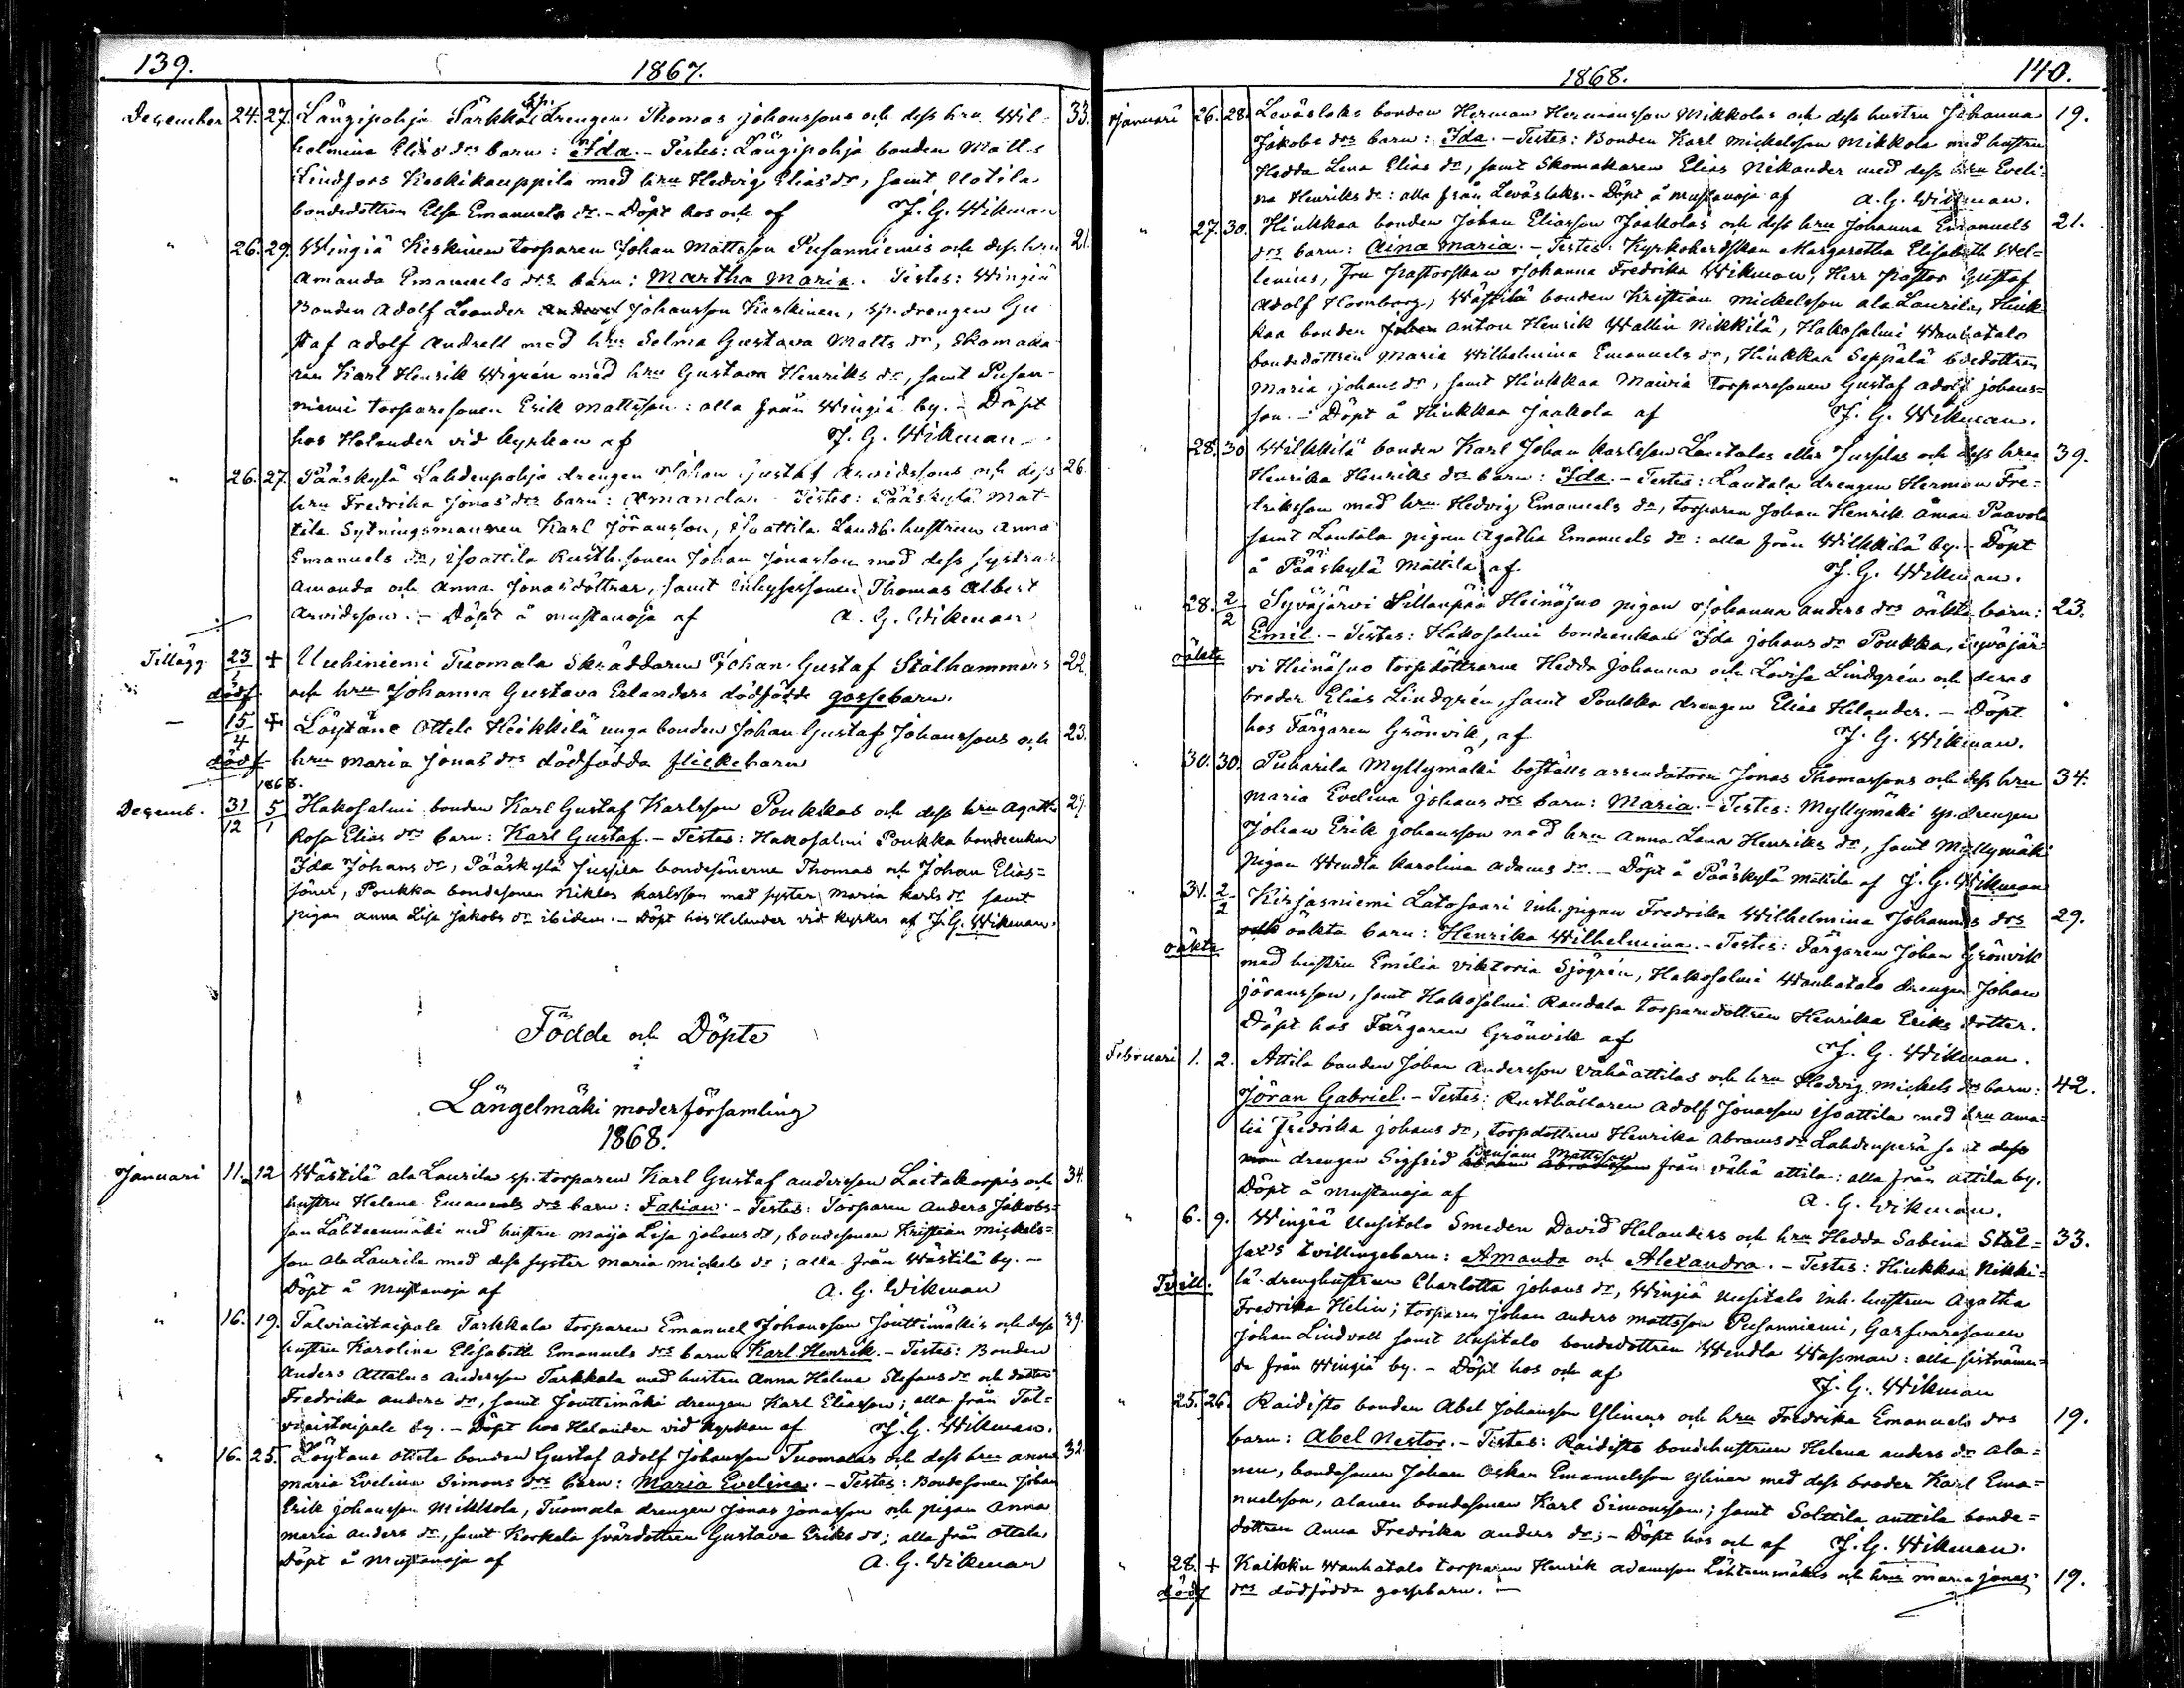 139.
1867.
December 24. 27. Längipohja Särkkä sp. drengen Thomas Johanssons och dess hru Wil- 33.
helmina Elias drs barn: Ida. - Testes: Längipohja bonden Matts
Lindfors Keskikauppila med hru Hedvig Elias dr, samt Uotila
bondedottren Elsa Emanuels dr. - Döpt hos och af J. G. Wikman
" 26. 29. Wingiä Keskinen torparen Johan Mattsson Pusanniemis och dess hru 21.
Amanda Emanuels drs barn: Martha Maria. Testes: Wingiä
Bonden Adolf Leander Johansson Keskinen, sp. drengen Gu
staf Adolf Andrell med hru Selma Gustava Matts dr, Skomaka
ren Karl Henrik Wigrén med hru Gustava Henriks dr, samt Pusan-
niemi torparesonen Erik Mattsson: alla från Wingiä by. - Döpt
hos Helander vid kyrkan af J. G. Wikman
" 26. 27. Pääskylä Lahdenpohja drengen Johan Gustaf Arvidssons och dess 26.
hru Fredrika Jonas drs barn: Amanda. Testes: Pääskylä Mat-
tila Sytningsmannen Karl Jöransson, Isoattila Landb. hustrun Anna
Emanuels dr, Isoattila Rusth. sonen Johan Jonasson med dess systrar
Amanda och Anna Jonasdöttrar, samt inhysessonen Thomas Albert
Arvidsson. - Döpt å Mustanoja af A. G. Wikman
Tillägg 23/1 + Uuhiniemi Tuomala Skräddaren Johan Gustaf Stålhammars 22.
dödf. och hru Johanna Gustava Erlanders dödfödde gossebarn.
- 15/4 + Löytäne Ottele Heikkilä unga bonden Johan Gustaf Johanssons och 23.
dödf hru Maria Jonas drs dödfödda flickebarn
1868.
Decemb. 31/12 5/1 Hakosalmi bonden Karl Gustaf Karlsson Poukkas och dess hru Agatha 29.
Rosa Elias drs barn: Karl Gustaf. - Testes: Hakosalmi Poukka bondeenkan
Ida Johans dr, Pääskylä Jussila bondesönerne Thomas och Johan Elias=
söner, Poukka bondesonen Niklas Karlsson med syster Maria Karls dr samt
pigan Anna Lisa Jakobs dr ibidem. - Döpt hos Helander vid kyrkan af J. G. Wikman.
Födde och Döpte
i
Längelmäki moderförsamling
1868.
Januari 11. 12 Wästilä ala Laurila sp. torparen Karl Gustaf Andersson Laitakorpis och 34.
hustru Helena Emanuels drs barn: Fabian. - Testes: Torparen Anders Jakobs=
son Lähteenmäki med hustru Maija Lisa Johans dr, bondesonen Kristian Mickels=
son ala Laurila med dess syster Maria Mickels dr; alla från Wästilä by. -
Döpt å Mustanoja af A. G. Wikman
" 16. 19. Talviaistaipale Tarkkala torparen Emanuel Johansson Jouttimäkis och dess 39.
hustru Karolina Elisabeth Emanuels drs barn Karl Henrik. - Testes: Bonden
Anders Attalus Andersson Tarkkala med hustru Anna Helena Stefans dr och dotter
Fredrika Anders dr, samt Jouttimäki drengen Karl Eliasson; alla från Tal-
viaistaipale by. - Döpt hos Helander vid kyrkan af J. G. Wikman.
" 16. 25. Löytäne Ottele bonden Gustaf Adolf Johansson Tuomalas och dess hru Anna 32.
Maria Evelina Simons drs barn: Maria Evelina. - Testes: Bondesonen Johan
Erik Johansson Mikkola, Tuomala drengen Jonas Jonasson och pigan Anna
Maria Anders dr, samt Korkala svärdottren Gustava Eriks dr; alla från Ottele
Döpt å Mustanoja af A. G. Wikman
1868.
140.
Januari 26. 28 Leväslaks bonden Herman Hermansson Mikkolas och dess hustru Johanna 19.
Jakobs drs barn: Ida. - Testes: Bonden Karl Mickelsson Mikkola med hustru
Hedda Lena Elias dr, samt Skomakaren Elias Nikander med dess hru Eveli-
na Henriks dr: alla från Leväslaks. - Döpt å Mustanoja af A. G. Wikman.
" 27. 30. Hiukkaa bonden Johan Eliasson Jaakolas och dess hru Johanna Emanuels 21.
drs barn: Aina Maria. - Testes: Kyrkoherdskan Margaretha Elisabeth Wel=
lenius, Fru Pastorskan Johanna Fredrika Wikman, Herr Pastor Gustaf
Adolf Hornborg, Wästilä bonden Kristian Mickelsson ala Laurila, Hiuk
kaa bonden Anton Henrik Wallin Nikkilä, Hakosalmi Wanhatalo
bondedottren Maria Wilhelmina Emanuels dr, Hiukkaa Seppälä bdedottren
Maria Johans dr, samt Hiukkaa Maivia torparesonen Gustaf Adolf Johans=
son. - Döpt å Hiukkaa Jaakola af J. G. Wikman.
28. 30 Wilkkilä bonden Karl Johan Karlsson Lautalas eller Jussilas och dess hru 39.
Henrika Henriks drs barn: Ida. - Testes: Lautala drengen Herman Fre=
driksson med hru Hedvig Emanuels dr, torparen Johan Henrik Åman Paavola
samt Lautala pigan Agatha Emanuels dr: alla från Wilkkilä by. - Döpt
å Pääskylä Mattila af J. G. Wikman.
28. 2/2 Syväjärvi Sillanpää Heinäsuo pigan Johanna Anders drs oäkta barn: 23.
Emil. - Testes: Hakosalmi bondeenkan Ida Johans dr Poukka, Syväjär
oäkta vi Heinäsuo torpdöttrarne Hedda Johanna och Lovisa Lindgrén och deras
broder Elias Lindgrén, samt Poukka drengen Elias Helander. - Döpt
hos Färgaren Grönvik, af J. G. Wikman.
30. 30. Puharila Myllymäki boställs arrendatorn Jonas Thomassons och dess hru 34.
Maria Evelina Johans drs barn: Maria. - Testes: Myllymäki sp. drengen
Johan Erik Johansson med hru Anna Lena Henriks dr, samt Myllymäki
pigan Wendla Karolina Adams dr. - Döpt å Pääskylä Mattila af J. G. Wikman
31. 2/2 Kirjasniemi Latosaari inh. pigan Fredrika Wilhelmina Johannes drs 29.
oäkta barn: Henrika Wilhelmina. - Testes: Färgaren Johan Grönvik
oäkta med hustru Emilia Viktoria Sjögrén, Hakosalmi Wanhatalo drengen Johan
Jöransson, samt Hakosalmi Randala torparedottren Henrika Eriks dotter.
Döpt hos Färgaren Grönvik af J. G. Wikman.
Februari 1. 2. Attila bonden Johan Andersson Vähäattilas och hru Hedvig Mickels drs barn: 42.
Jöran Gabriel. - Testes: Rusthållaren Adolf Jonasson Isoattila med hru Ama=
lia Fredrika Johans dr, torpdottren Henrika Abrams dr Lahdenperä samt
drengen Sigfrid Benjam Mattsson från Vähä attila: alla från Attila by.
Döpt å Mustanoja af A. G. Wikman.
" 6. 9. Wingiä Uusitalo Smeden David Helanders och hru Hedda Sabina Stål= 33.
sax's tvillingebarn: Amanda och Alexandra. - Testes: Hiukkaa Nikki=
Tvill. lä drenghustrun Charlotta Johans dr, Wingiä Uusitalo inh. hustrun Agatha
Fredrika Helin; torparen Johan Anders Mattsson Pusanniemi, Garfvaresonen
Johan Lindvall samt Uusitalo bondedottren Wendla Wassman: alla sistnämn=
da från Wingiä by. - Döpt hos och af J. G. Wikman
" 25. 26. Raidisto bonden Abel Johansson Ylinens och hru Fredrika Emanuels drs 19.
barn: Abel Nestor. - Testes: Raidisto bondehustrun Helena Anders dr Ala=
nen, bondesonen Johan Oskar Emanuelsson Ylinen med dess broder Karl Ema=
nuelsson, Alanen bondesonen Karl Simonsson; samt Solttila Anttila bonde=
dottren Anna Fredrika Anders dr; - Döpt hos och af J. G. Wikman.
" 28. + Kaikku Wanhatalo torparen Henrik Adamsson Lähteenmäkis och hru Maria Jonas 19.
dödf drs dödfödda gossebarn. -